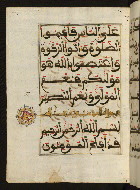 على الناس فاقيموا
الصلوة واتوا الزكوة
واعتصموا بالله هو
موليكم فنعم
المولى ونعم النصير
بسم الله الرحمن الرحيم
قد افلح المومنون